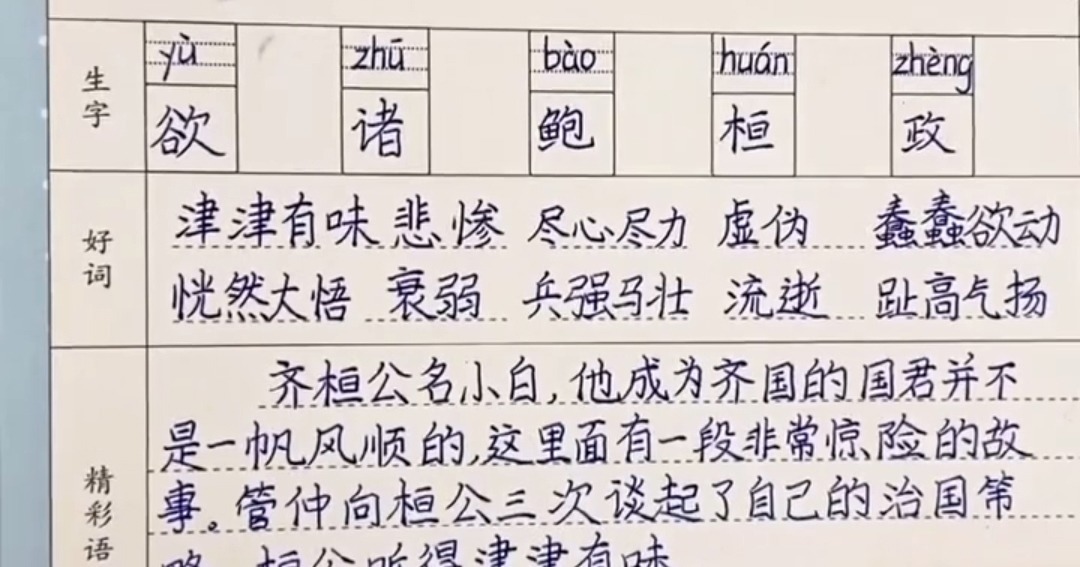 生字
yù zhū bào huán zhèng
欲 诸 鲍 桓 政
好词
津津有味 悲惨 尽心尽力 虚伪 蠢蠢欲动
恍然大悟 衰弱 兵强马壮 流逝 趾高气扬
精彩语
齐桓公名小白,他成为齐国的国君并不
是一帆风顺的,这里面有一段非常惊险的故
事。管仲向桓公三次谈起了自己的治国策
略,桓公听得津津有味